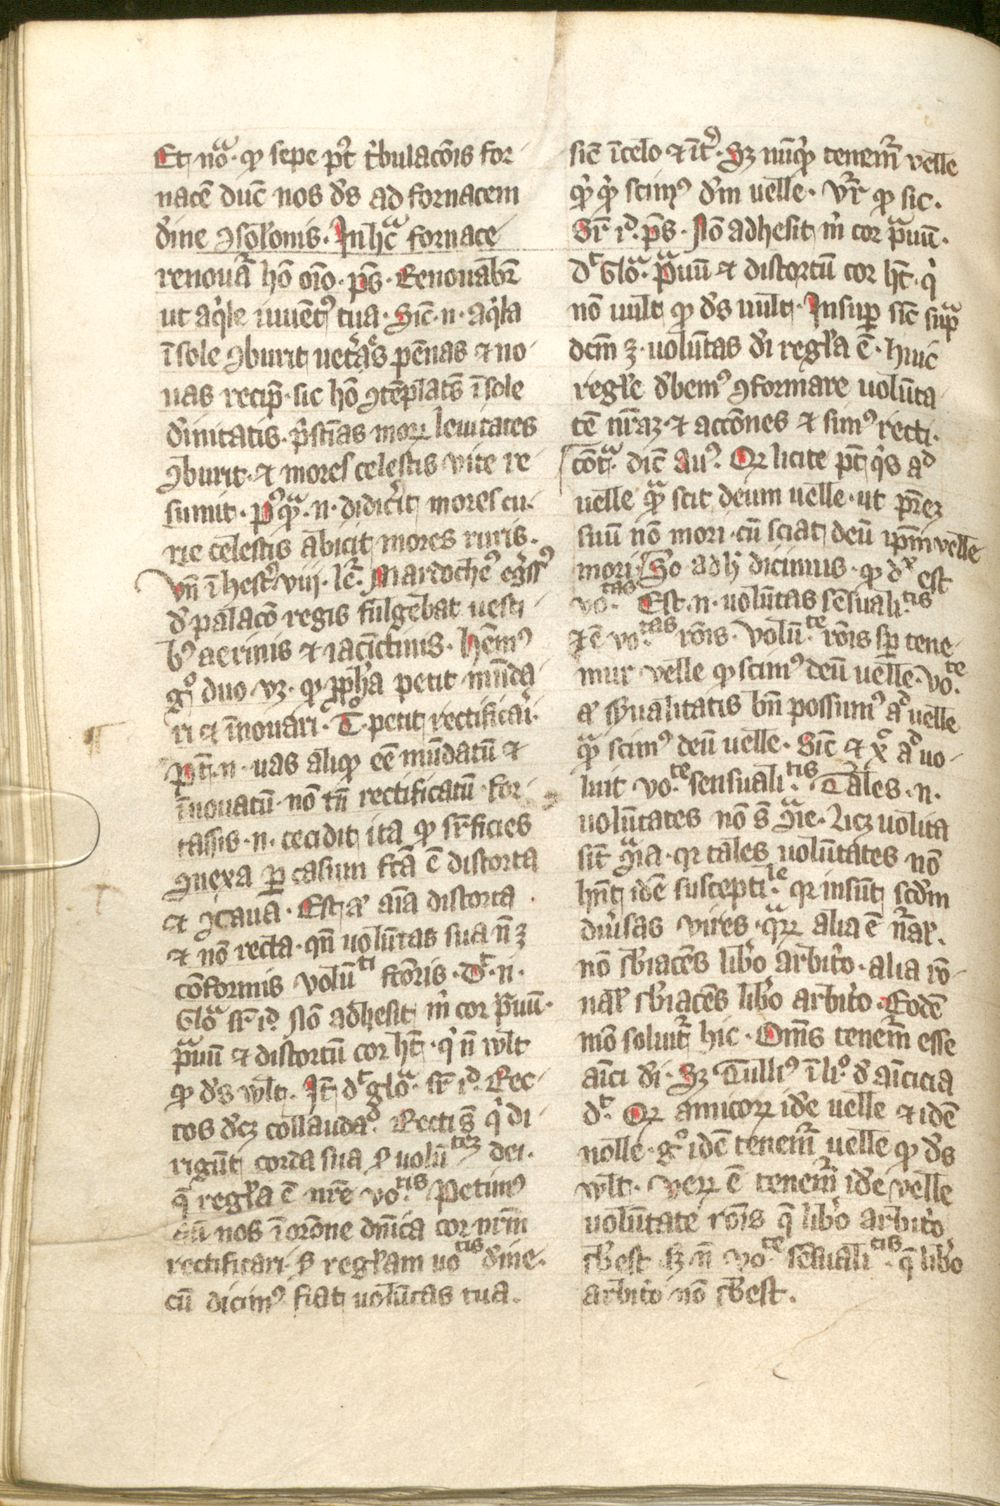 Et no͛ᵃ · qͦ sepe pꝰt t͛bulacōis for-
nacē ducē nos dʾs ad fornacem
dʾine ꝯsol̄onis. In hᵃc fornace
renouat᷑ hō oīo · pˢ · Renouab᷑r
ut aqͥle iuuētꝰ tua · Sic̄ · n · aqͥla
ī sole ꝯburit uet͛aˢ pēnas ⁊ no-
uas recip̄ · sic hō ꝯtēplatꝰ ī sole
dʾinitatis · pͥstīas moꝝ leuitates
ꝯburit · ⁊ mores celestis vite re-
sumit · pꝰqᵃ · n · didic͛it mores cu-
rie celestis abicit mores ruris.
vn̄ ī hest͛ viij · lr̄ · Mardocheꝰ eg͛ssꝰ
dʾ palacō regis fulgebat uesti-
bꝰ aerinis ⁊ iacīctinis · hēmꝰ
gͦ duo vꝫ · qͦ ꝓpha petit mūda-
ri et īnouari · Tͦ petit rectificari ·
pōt · n · uas aliqͦ eē mūdatū ⁊
īnouatū · nō tn̄ rectificatū · for-
tassis · n · cecidit ita qͦ suꝑficies
ꝯuexa ꝑ casum fcā ē distorta
⁊ ꝯcaua · Est · aīa distorta
⁊ nō recta · qn̄ uolūtas sua n̄ ꝫ
cōformis volūᵗⁱ scōris · dᶜ · n ·
Gloᵃ sr̄ iᵈ · Nō adhesit m̄ cor pᵃuū ·
pᵃuū ⁊ distortū cor hꝫ · qͥ n̄ wlt
qͦ dʾs wlt · It̄ dᶜ gloᵃ · sr̄ iᵈ · Rec-
tos dcꝫ collaudaᵈ · Recti s̄ qͥ di-
rigūt corda sua ẜ uolūᵗᵉᵐ dei ·
q̄ regl̄a ē nr̄e voᵗⁱˢ · Petimꝰ
nos ī orōne dn̄ica cor nr̄m
rectificari · ẜ regl̄am uoᵗⁱˢ dʾine ·
cū dicimꝰ fiat uolūtas tua.
sic̄ ī celo ⁊ ī t͛ · Sꝫ nūqͥd tenem᷑ velle
qͥcqͥd scimꝰ dʾm uelle · vr̄ qͦ sic ·
Sr̄ iᵈ · pˢ · Nō adhesit m̄ cor pᵃuū ·
dᶜ Gloᵃ · pᵃuū ⁊ distortū cor hꝫ · qͥ
nō uult qͦ dʾs uult · Insuꝑ sic̄ supᵃ
dcm̄ ꝫ · uolūtas dʾi regl̄a ē · huic
regl̄e dʾbemꝰ ꝯformare uolūta-
tē nr̄aꝫ · ⁊ accōnes ⁊ simꝰ recti ·
Cōtᵃ · dic̄ Auᵍ · Qꝛ licite pt̄ qͥs aᵈ
uelle qᵃ scit deum uelle · ut pr̄eꝫ
suū nō mori · cū sciat deū ipm̄ velle
mori · So ad hͨ dicimus · qͦ dˣ est
voᵗᵃˢ · Est · n · uolūtas sēsualiᵗⁱˢ
⁊ ē voᵗᵃˢ rōis · Volūᵗᵉ rōis sꝑ tene-
mur velle qͦ scimꝰ deū uelle · voᵗᵉ
sʾsualitatis bn̄ possumꝰ aᵈ uelle
qᵃ scimꝰ deū uelle · Sic̄ ⁊ xᵒ aᵈ uo-
luit voᵗᵉ sensualiᵗⁱˢ · Tales · n ·
uolūtates nō s̄ ꝯᵃie · licꝫ uolita
sīt ꝯᵃia · qꝛ tales uolūtates nō
hn̄t idē susceptiˡᵉ · qꝛ insūt scdʾm
diu͛sas vires · qᵃꝝ alia ē nᵃl̄ ·
nō sbiacēs lib͛o arbit͛o · alia rō-
nal̄ sbiacēs lib͛o arbit͛o · Eodē
mō soluit᷑ hic · Om̄s tenem᷑ esse
aīci dʾi · Sꝫ Tulliꝰ ī liᵒ dʾ aīcicia
dᵗ · Qꝛ amicoꝝ idʾe uelle ⁊ idē
nolle · gͦ idē tenem᷑ uelle qͦ dʾs
wlt · Veꝝ ē tenem᷑ idʾe velle
uolūtate rōis q̄ lib͛o arbit͛o
sbest · sꝫ n̄ voᵗᵉ sēsualiᵗⁱˢ · q̄ lib͛o
arbit͛o nō sbest.